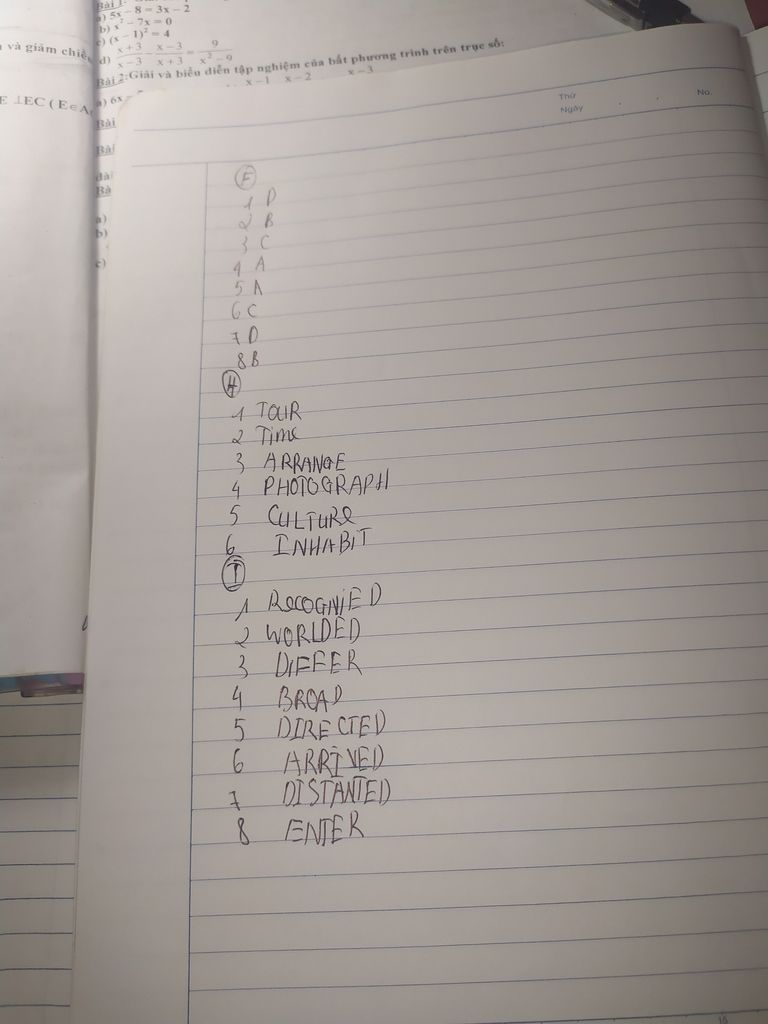 Bài 1:
a) 5x − 8 = 3x − 2
b) x² − 7x = 0
c) (x − 1)² = 4
d) x+3/x−3 − x−3/x+3 = 9/x²−9
Bài 2:Giải và biểu diễn tập nghiệm của bất phương trình trên trục số:
x−1 x−2 x−3
a) 6x
Bài
Bài
Bà
a)
b)
c)
và giảm chiề
E ⊥EC ( E∈A
Thứ
Ngày
No.
F
1 D
2 B
3 C
4 A
5 A
6 C
7 D
8 B
H
1 TOUR
2 Time
3 ARRANGE
4 PHOTOGRAPH
5 CULTURe
6 INHABIT
I
1 ReCOGNIED
2 WORLDED
3 DIFFER
4 BROAD
5 DIRECTED
6 ARRIVED
7 DISTANTED
8 ENTER